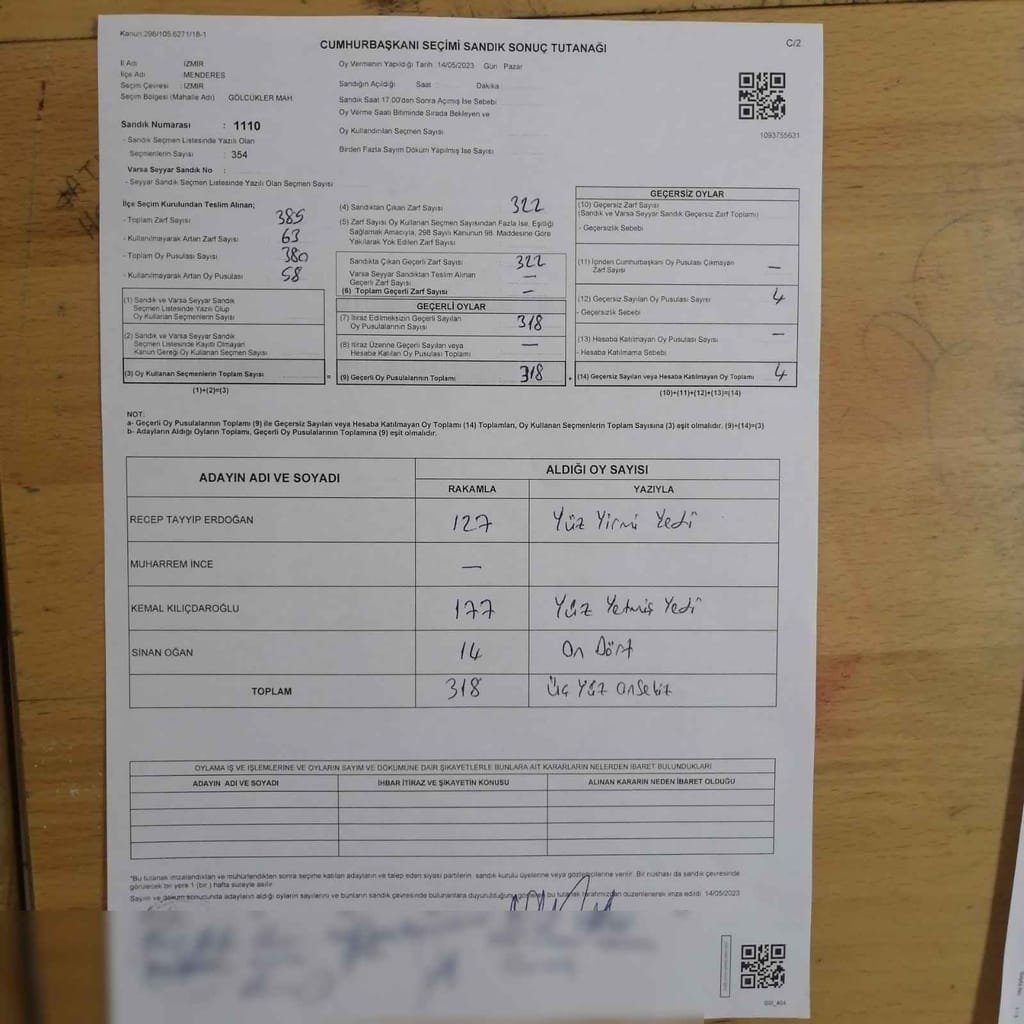 Kanun 298/105.6271/18-1
CUMHURBAŞKANI SEÇİMİ SANDIK SONUÇ TUTANAĞI
C/2
İl Adı : İZMİR
İlçe Adı : MENDERES
Seçim Çevresi : İZMİR
Seçim Bölgesi (Mahalle Adı) GÖLCÜKLER MAH.
Sandık Numarası : 1110
- Sandık Seçmen Listesinde Yazılı Olan
Seçmenlerin Sayısı : 354
Varsa Seyyar Sandık No :
- Seyyar Sandık Seçmen Listesinde Yazılı Olan Seçmen Sayısı
Oy Vermenin Yapıldığı Tarih 14/05/2023 Gün Pazar
Sandığın Açıldığı Saat Dakika
Sandık Saat 17.00'dan Sonra Açımış İse Sebebi
Oy Verme Saati Bitiminde Sırada Bekleyen ve
Oy Kullandırılan Seçmen Sayısı
Birden Fazla Sayım Döküm Yapılmış İse Sayısı
1093755631
İlçe Seçim Kurulundan Teslim Alınan;
- Toplam Zarf Sayısı 385
- Kullanılmayarak Artan Zarf Sayısı 63
- Toplam Oy Pusulası Sayısı 380
- Kullanılmayarak Artan Oy Pusulası 58
(1) Sandık ve Varsa Seyyar Sandık
Seçmen Listesinde Yazılı Olup
Oy Kullanan Seçmenlerin Sayısı
(2) Sandık ve Varsa Seyyar Sandık
Seçmen Listesinde Kayıtlı Olmayan
Kanun Gereği Oy Kullanan Seçmen Sayısı
(3) Oy Kullanan Seçmenlerin Toplam Sayısı =
(1)+(2)=(3)
(4) Sandıktan Çıkan Zarf Sayısı 322
(5) Zarf Sayısı Oy Kullanan Seçmen Sayısından Fazla İse, Eşitliği
Sağlamak Amacıyla, 298 Sayılı Kanunun 98. Maddesine Göre
Yakılarak Yok Edilen Zarf Sayısı
Sandıkta Çıkan Geçerli Zarf Sayısı 322
Varsa Seyyar Sandıktan Teslim Alınan
Geçerli Zarf Sayısı —
(6) Toplam Geçerli Zarf Sayısı —
GEÇERLİ OYLAR
(7) İtiraz Edilmeksizin Geçerli Sayılan
Oy Pusulalarının Sayısı 318
(8) İtiraz Üzerine Geçerli Sayılan veya
Hesaba Katılan Oy Pusulası Toplamı —
(9) Geçerli Oy Pusulalarının Toplamı 318 +
GEÇERSİZ OYLAR
(10) Geçersiz Zarf Sayısı
(Sandık ve Varsa Seyyar Sandık Geçersiz Zarf Toplamı)
- Geçersizlik Sebebi
(11) İçinden Cumhurbaşkanı Oy Pusulası Çıkmayan
Zarf Sayısı —
(12) Geçersiz Sayılan Oy Pusulası Sayısı 4
- Geçersizlik Sebebi
(13) Hesaba Katılmayan Oy Pusulası Sayısı —
- Hesaba Katılmama Sebebi
(14) Geçersiz Sayılan veya Hesaba Katılmayan Oy Toplamı 4
(10)+(11)+(12)+(13)=(14)
NOT:
a- Geçerli Oy Pusulalarının Toplamı (9) ile Geçersiz Sayılan veya Hesaba Katılmayan Oy Toplamı (14) Toplamları, Oy Kullanan Seçmenlerin Toplam Sayısına (3) eşit olmalıdır. (9)+(14)=(3)
b- Adayların Aldığı Oyların Toplamı, Geçerli Oy Pusulalarının Toplamına (9) eşit olmalıdır.
ADAYIN ADI VE SOYADI
ALDIĞI OY SAYISI
RAKAMLA YAZIYLA
RECEP TAYYİP ERDOĞAN 127 Yüz Yirmi Yedi
MUHARREM İNCE —
KEMAL KILIÇDAROĞLU 177 Yüz Yetmiş Yedi
SİNAN OĞAN 14 On Dört
TOPLAM 318 Üç Yüz onsekiz
OYLAMA İŞ VE İŞLEMLERİNE VE OYLARIN SAYIM VE DÖKÜMÜNE DAİR ŞİKAYETLERLE BUNLARA AİT KARARLARIN NELERDEN İBARET BULUNDUKLARI
ADAYIN ADI VE SOYADI İHBAR İTİRAZ VE ŞİKAYETİN KONUSU ALINAN KARARIN NEDEN İBARET OLDUĞU
*Bu tutanak imzalandıktan ve mühürlendikten sonra seçime katılan adayların ve talep eden siyasi partilerin sandık kurulu üyelerine veya gözlemcilerine verilir. Bir nüshası da sandık çevresinde
görülecek bir yere 1 (bir ) hafta süreyle asılır.
Sayım ve döküm sonucunda adayların aldığı oyların sayılarını ve bunların sandık çevresinde bulunanlara duyurulduğunu bu tutanak tarafımızdan düzenlenerek imza edildi. 14/05/2023